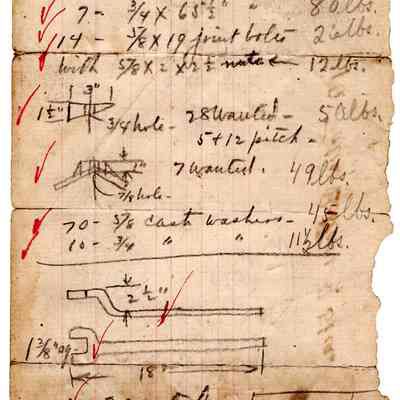 7 - 3/4 X 65 1/2 " " 80 lbs.
14 - 5/8 X 19 joint bolts 26 lbs.
with 5/8 X 2 X 2 1/2 nuts 12 lbs.
3"
1 1/2" 3/4 hole - 28 Wanted - 50 lbs.
5 + 12 pitch -
7 wanted. 49 lbs.
7/8 hole -
70 - 5/8 cast washers - 45 lbs.
10 - 3/4 " " 11 1/2 lbs.
2 1/2"
1 3/8"
18"